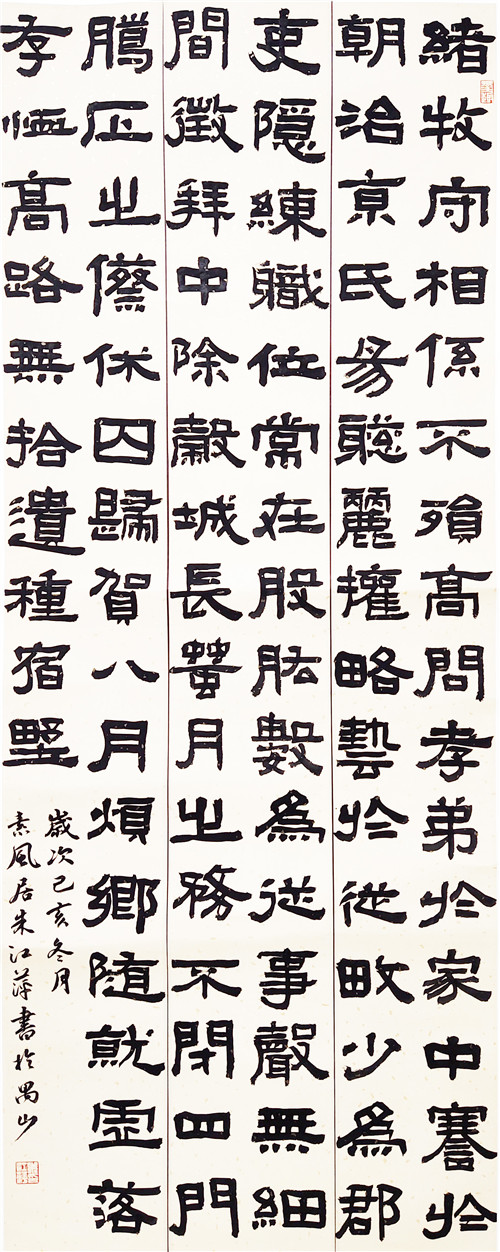 緒牧守相係不殞高問孝弟於家中謇於
朝治京氏易聰麗權略藝於從畋少為郡
吏隱練職位常在股肱數為從事聲無細
間徵拜中除穀城長蠶月之務不閉四門
騰正之僚休囚歸賀八月煩鄉隨就虛落
存恤高路無拾遺種宿野
歲次己亥冬月
素風居朱江萍書於禺山